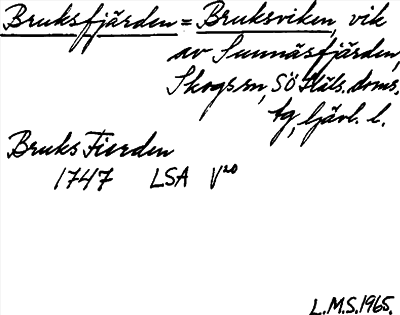 Bruksfjärden = Bruksviken, vik
av Sunnäsfjärden,
Skogs sn, Sö Häls. doms.
tg, Gävl. l.
Bruks Fierden
1747 LSA V²⁰
L.M.S. 1965.